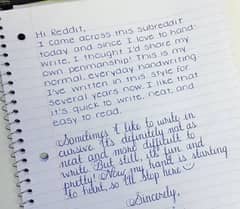 Hi Reddit,
I came across this subreddit
today and since I love to hand-
write, I thought I'd share my
own penmanship! This is my
normal, everyday handwriting.
I've written in this style for
several years now. I like that
it's quick to write, neat, and
easy to read.
Sometimes I like to write in
cursive. It's definitely not as
neat and more difficult to
write. But still, it's fun and
pretty! Now my hand is starting
to hurt, so I'll stop here
Sincerely,